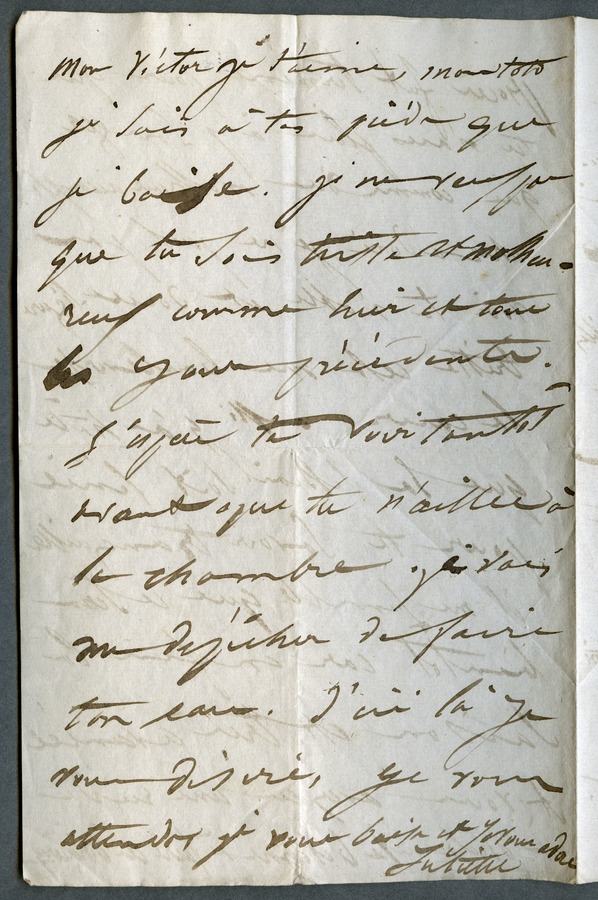 Mon Victor je t'aime, mon toto
je suis à tes pieds que
je baise. je ne veux pas
que tu sois triste et malheu-
reux comme hier et tous
les jours précédents.
J'espère te voir tantôt
avant que tu n'ailles à
la chambre. je vais
me dépêcher de faire
ton eau. d'ici là je
vous désire, je vous
attends, je vous baise et je vous adore
Juliette